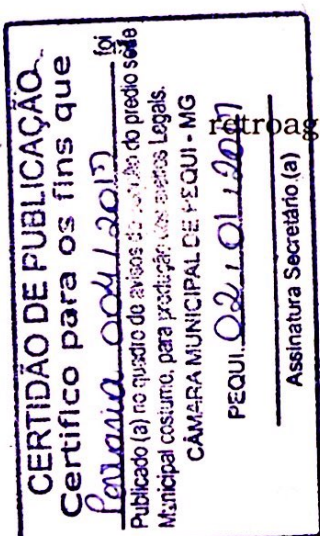 CERTIDÃO DE PUBLICAÇÃO
Certifico para os fins que
Portaria 004/2017 foi
Publicado (a) no quadro de avisos do do predio séde
Municipal costume, para produção dos efeitos Legais.
CÂMARA MUNICIPAL DE PEQUI - MG
PEQUI. 02, 01, 2017
Assinatura Secretário (a)
retroag